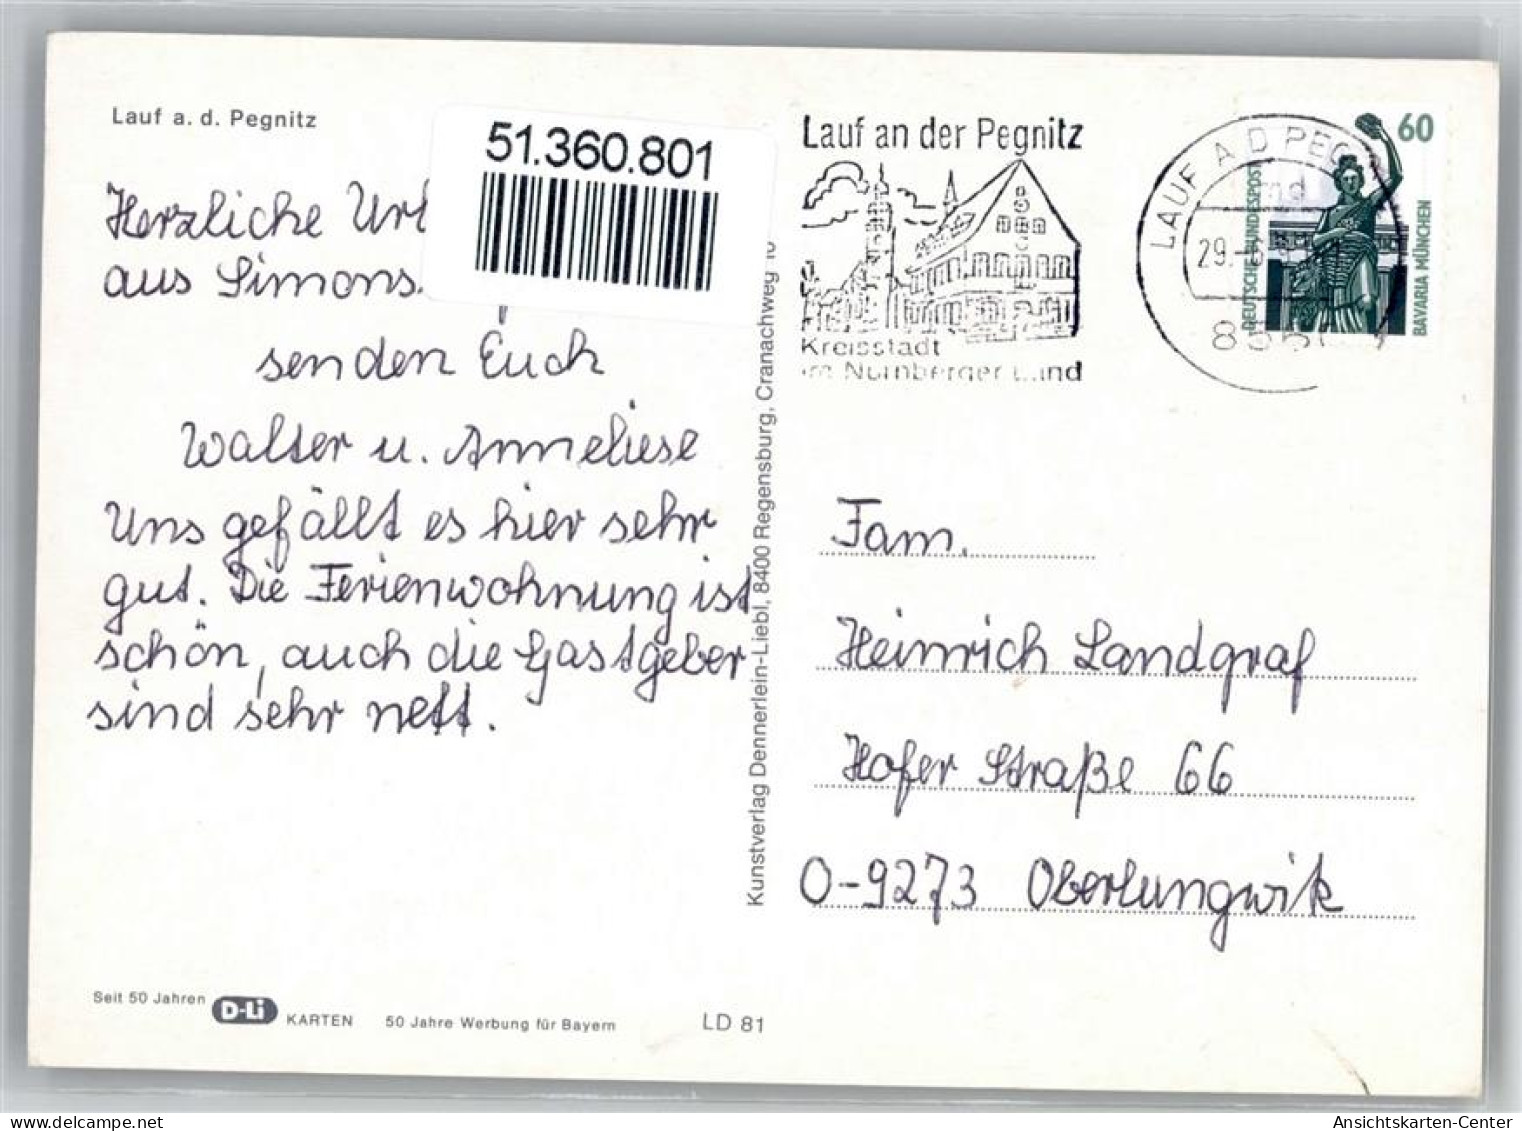 Lauf a. d. Pegnitz
51.360.801
Herzliche
aus Simons
senden Euch
Walter u. Anneliese
Uns gefällt es hier sehr
gut. Die Ferienwohnung ist
schön, auch die Gastgeber
sind sehr nett.
Seit 50 Jahren D-Li KARTEN 50 Jahre Werbung für Bayern LD 81
Kunstverlag Dennerlein-Liebl, 8400 Regensburg, Cranachweg
Lauf an der Pegnitz
Kreisstadt
im Nürnberger Land
LAUF A D PEG
29.
60
DEUTSCHE BUNDESPOST
BAVARIA MÜNCHEN
Fam.
Heinrich Landgraf
Hofer Straße 66
O-9273 Oberlungwik
Ansichtskarten-Center